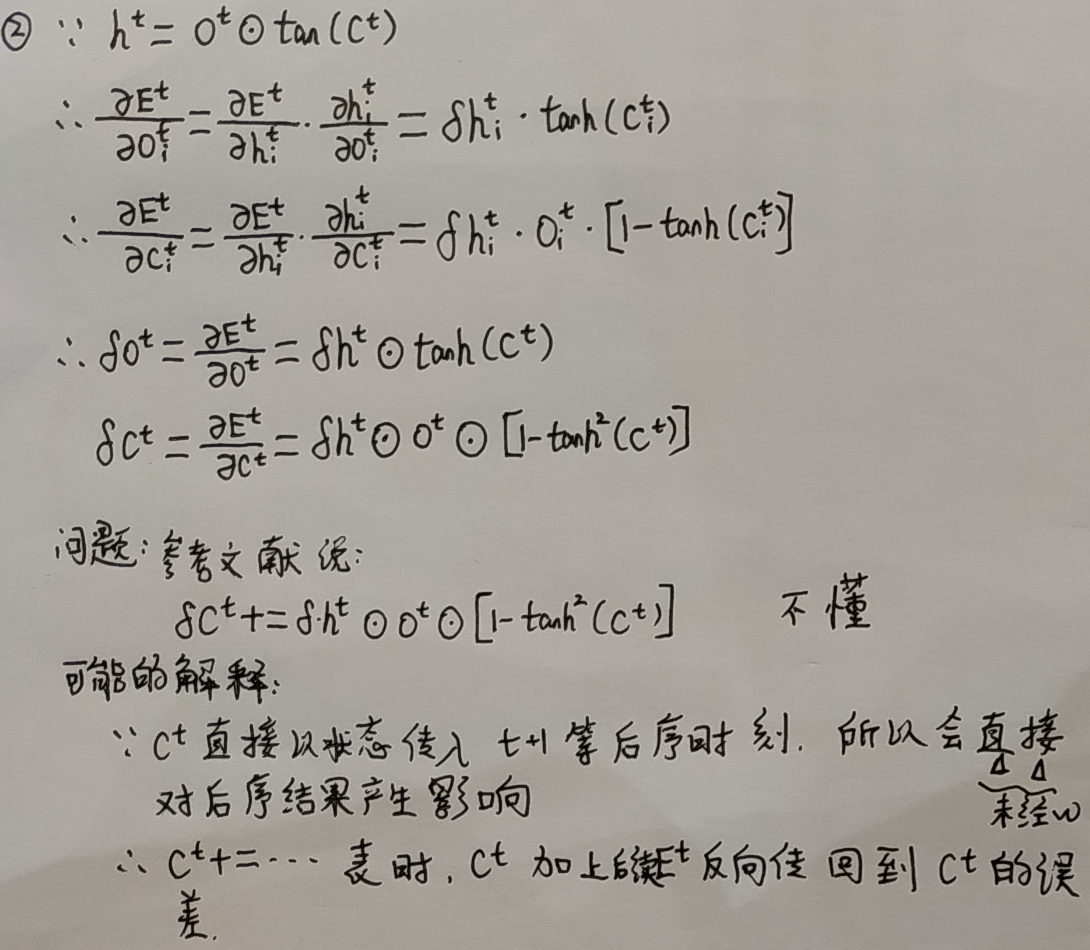 ② ∵ h^t = O^t ⊙ tan(C^t)
∴ ∂E^t/∂O_i^t = ∂E^t/∂h_i^t · ∂h_i^t/∂O_i^t = δh_i^t · tanh(C_i^t)
∴ ∂E^t/∂C_i^t = ∂E^t/∂h_i^t · ∂h_i^t/∂C_i^t = δh_i^t · O_i^t · [1-tanh(C_i^t)]
∴ δO^t = ∂E^t/∂O^t = δh^t ⊙ tanh(C^t)
δC^t = ∂E^t/∂C^t = δh^t ⊙ O^t ⊙ [1-tanh²(C^t)]
问题：参考文献说：
δC^t += δh^t ⊙ O^t ⊙ [1-tanh²(C^t)] 不懂
可能的解释：
∵ C^t 直接以状态传入 t+1 等后序时刻. 所以会直接
对后序结果产生影响
未经w
∴ C^t += ··· 表时, C^t 加上后续E^t反向传回到 C^t 的误
差.